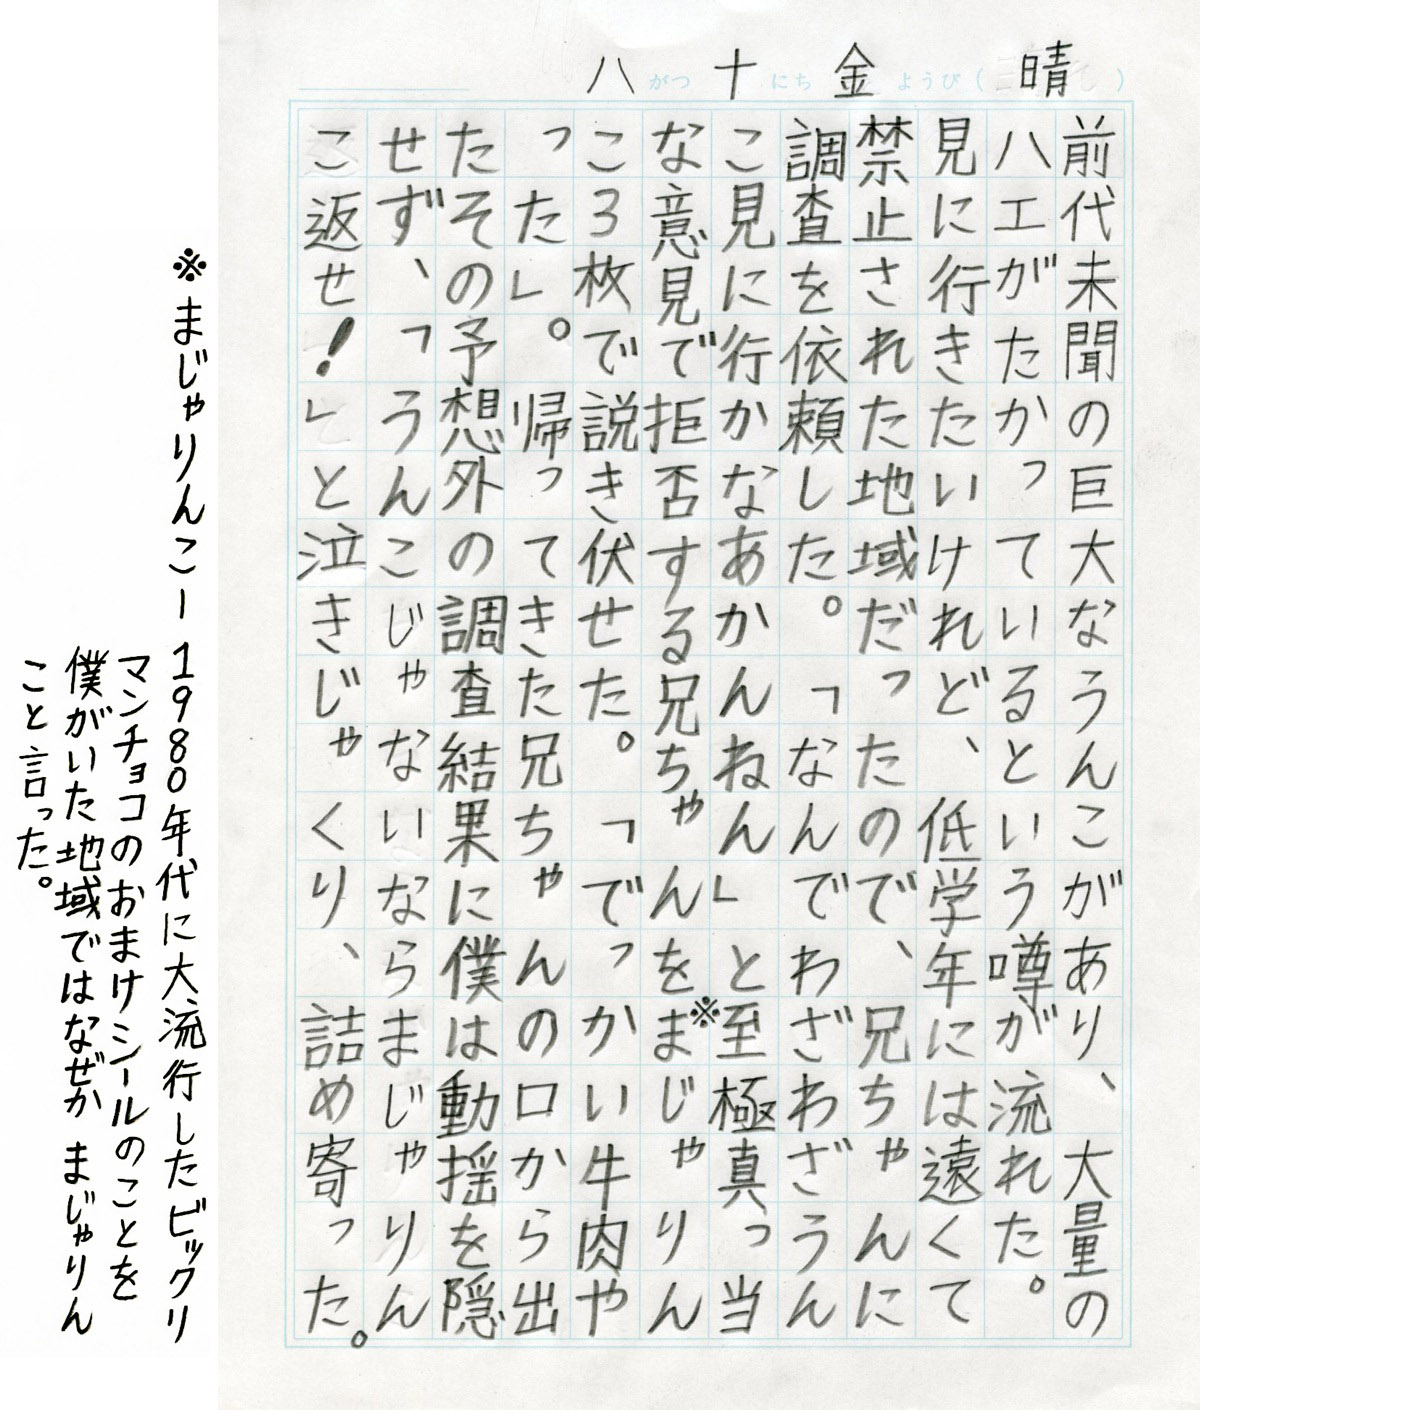 八がつ十にち金ようび(晴)
前代未聞の巨大なうんこがあり、大量の
ハエがたかっているという噂が流れた。
見に行きたいけれど、低学年には遠くて
禁止された地域だったので、兄ちゃんに
調査を依頼した。「なんでわざわざうん
こ見に行かなあかんねん」と至極真っ当
な意見で拒否する兄ちゃんを※まじゃりん
こ3枚で説き伏せた。「でっかい牛肉や
った」。帰ってきた兄ちゃんの口から出
たその予想外の調査結果に僕は動揺を隠
せず、「うんこじゃないならまじゃりん
こ返せ!」と泣きじゃくり、詰め寄った。
※まじゃりんこー1980年代に大流行したビックリ
マンチョコのおまけシールのことを
僕がいた地域ではなぜかまじゃりん
こと言った。